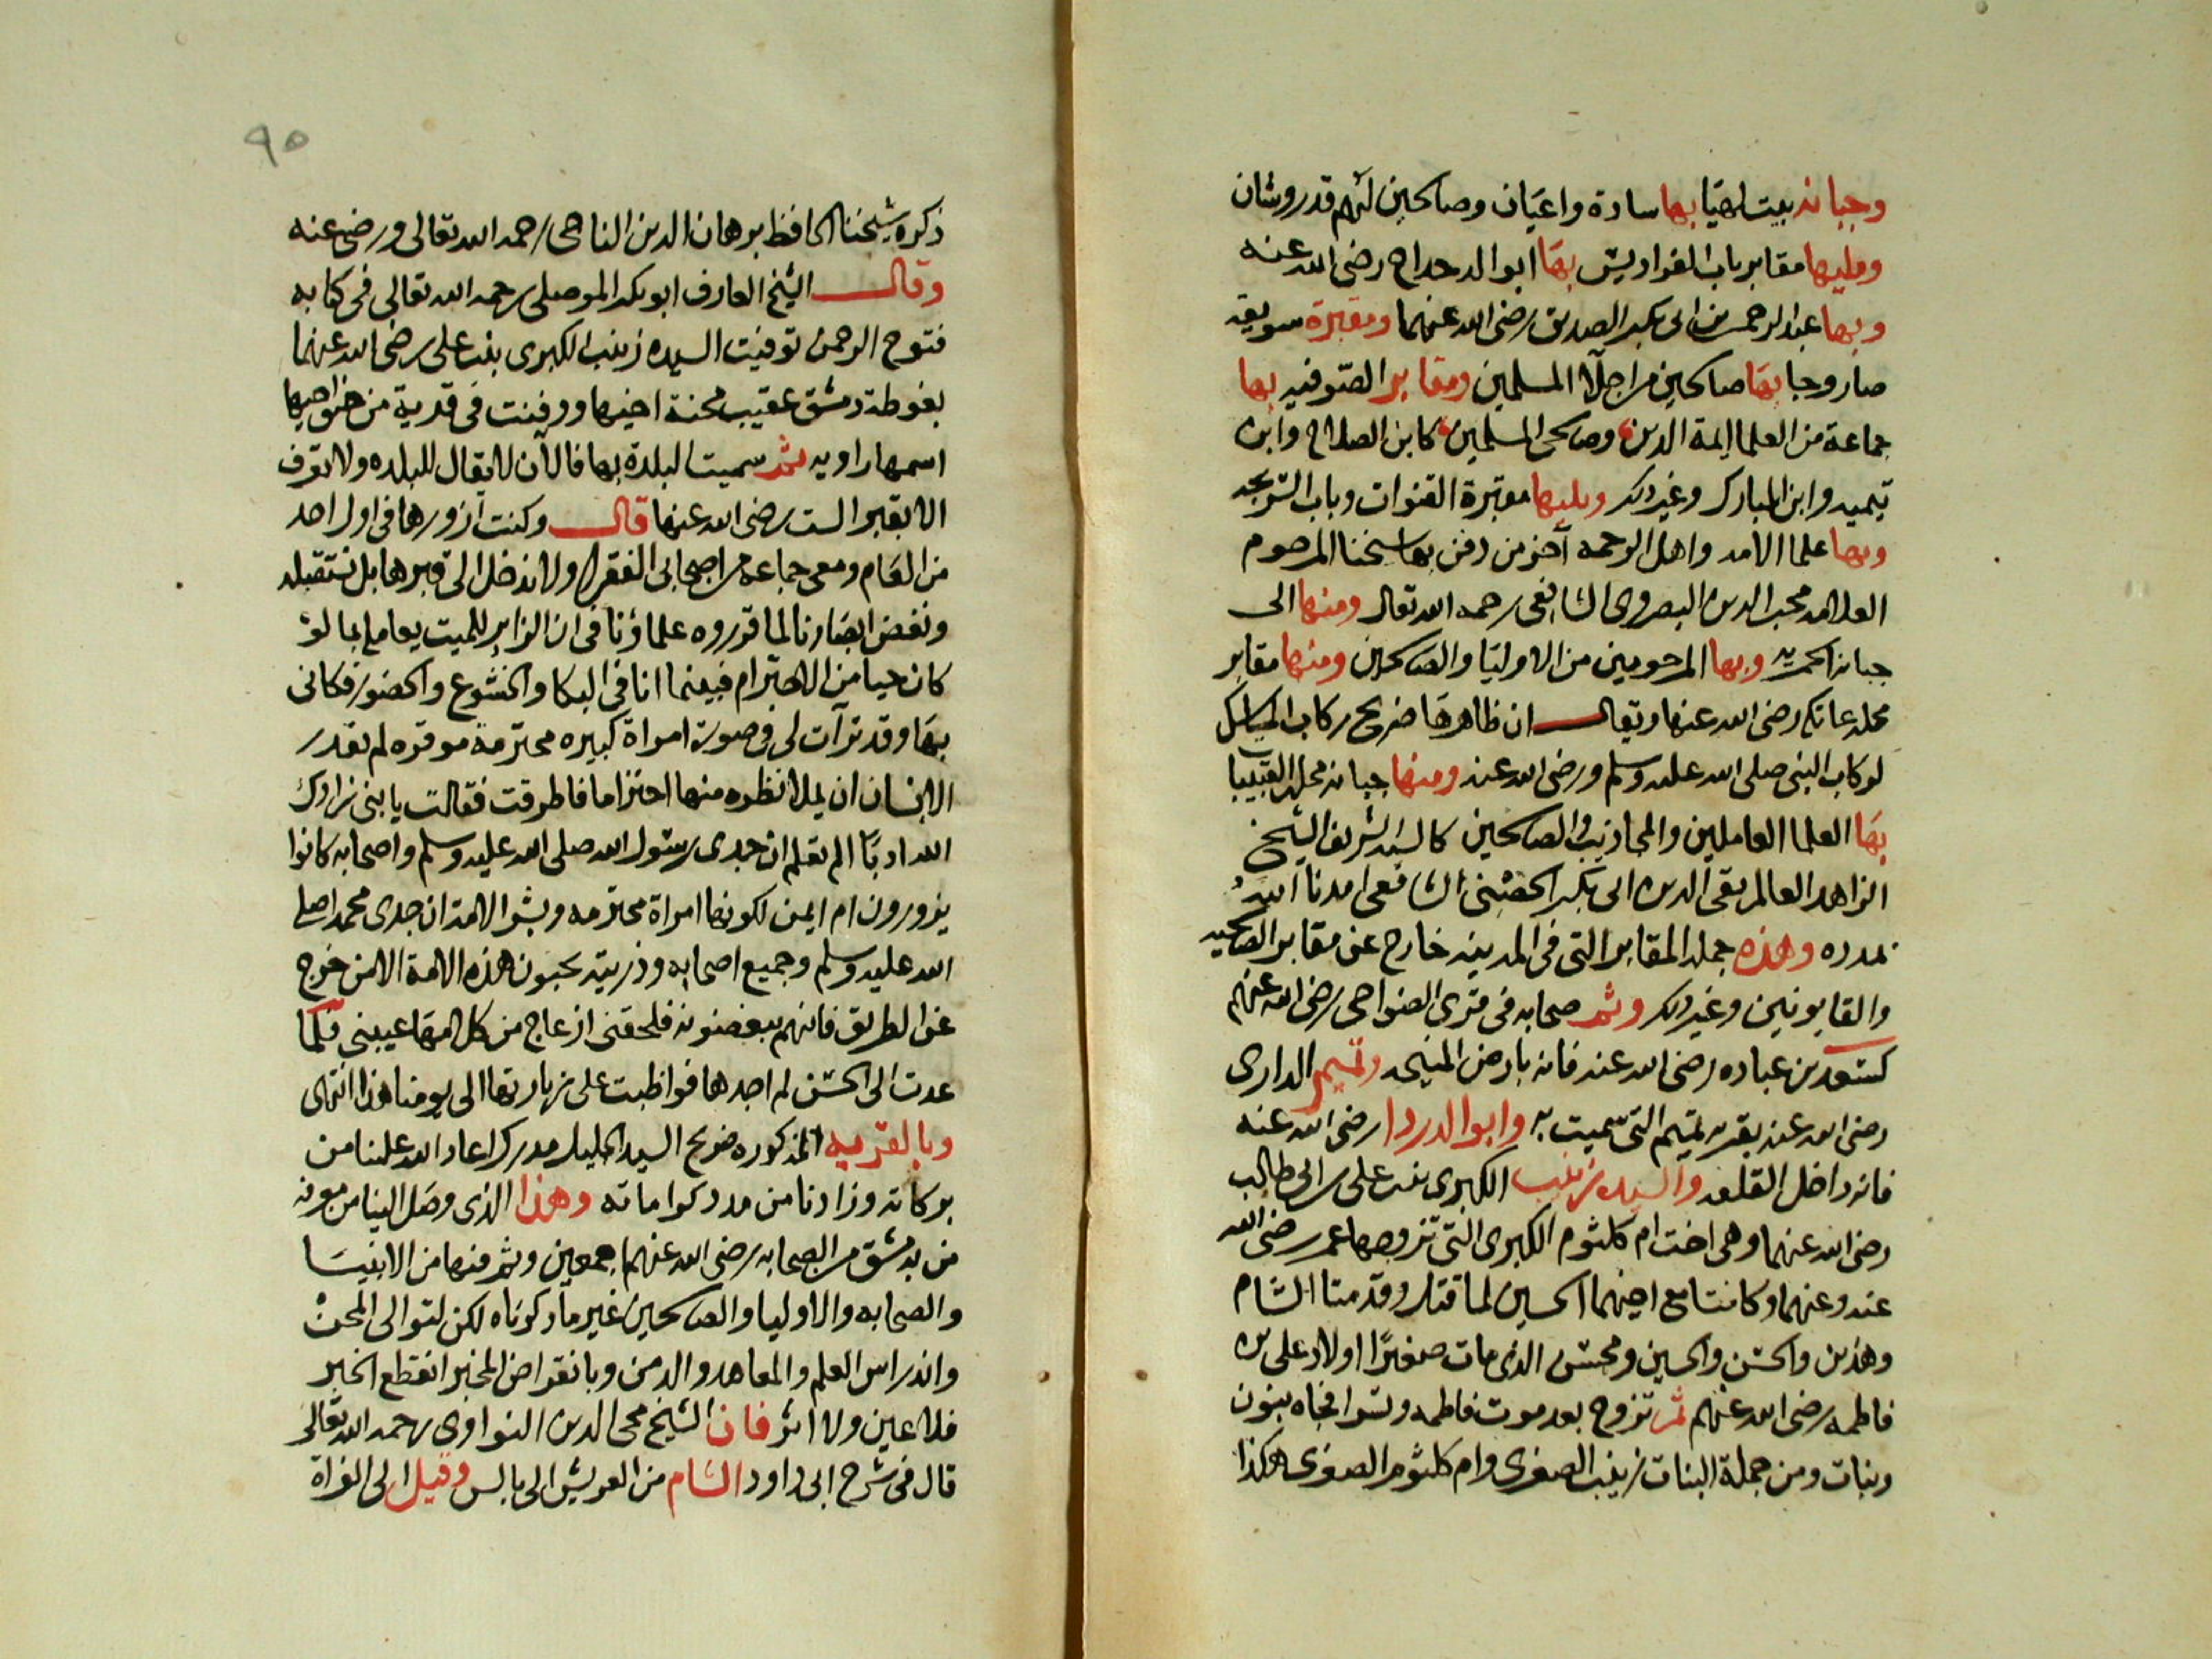 وجبانه بيت لهيا بها سادة واعيان وصالحين لهم قدر وشان
ويليها مقابر باب الفراديس بها ابو الدحداح رضى الله عنه
وبها عبد الرحمن بن ابى بكر الصديق رضى الله عنهما ومقبرة سويقه
صاروجا بها صالحين من اجلاا المسلمين ومقابر الصوفيه بها
جماعة من العلما ايمة الدين وصالحى المسلمين كابن الصلاح وابن
تيميه وابن المبارك وغير ذلك ويليها مقبرة القنوات وباب السريجه
وبها علما الامه واهل الرحمه آخر من دفن بها شيخنا المرحوم
العلامه محب الدين البصروى الشافعى رحمه الله تعالى ومنها الى
جبانه الحمريه وبها المرحومين من الاوليا والصالحين ومنها مقابر
محله عاتكه رضى الله عنها ويقال ان ظاهرها ضريح ركاب
لركاب النبى صلى الله عليه وسلم ورضى الله عنه ومنها جبانه محله القبيبات
بها العلما العاملين والمجاذيب والصالحين كالسيد الشريف الشيخ
الزاهد العالم تقى الدين ابى بكر الحصنى الشافعى امدنا الله
بمدده وهذه جمله المقابر التى فى المدينه خارج عن مقابر الصالحيه
والقابونين وغير ذلك وثم صحابه فى قرى الضواحى رضى الله عنهم
كسعد بن عباده رضى الله عنه فانه بارض المنيحه وتميم الدارى
رضى الله عنه بقريه تميم التى سميت به وابو الدردا رضى الله عنه
فانه داخل القلعه والسيده زينب الكبرى بنت على بن ابى طالب
رضى الله عنهما وهى اخت ام كلثوم الكبرى التى تزوجها عمر رضى الله
عنه وعنهما وكانتا مع اخيهما الحسين لما قتل وقدمتا الشام
وهذين والحسن والحسين ومحسن الذى مات صغيرًا اولاد على من
فاطمه رضى الله عنهم ثم تزوج بعد موت فاطمه وتسرا فجاه بنون
وبنات ومن جملة البنات زينب الصغرى وام كلثوم الصغرى هكذا
٩٥
ذكره شيخنا الحافظ برهان الدين الناجى رحمه الله تعالى ورضى عنه
وقال الشيخ العارف ابو بكر الموصلى رحمه الله تعالى فى كتابه
فتوح الرحمن توفيت السيده زينب الكبرى بنت على رضى الله عنهما
بغوطة دمشق عقيب محنة اخيها ودفنت فى قرية من ضواحيها
اسمها راويه ثم سميت البلدة بها فالآن لا يقال للبلده ولا تعرف
الا بقبر الست رضى الله عنها قال وكنت ازورها فى اول احد
من العام ومعى جماعه من اصحابى الفقرا ولا ندخل الى قبرها بل نستقبله
ونغض ابصارنا لما قرروه علماؤنا فى ان الزاير للميت يعامله بما لو
كان حيا من الاحترام فبينما انا فى البكا والخشوع والحضور فكانى
بها وقد ترآت لى فى صورة امراة كبيره محترمة موقره لم يقدر
الانسان ان يملا نظره منها احتراما فاطرقت فقالت يا بنى زادك
الله ادبًا الم تعلم ان جدى رسول الله صلى الله عليه وسلم واصحابه كانوا
يزورون ام ايمن لكونها امراة محترمه وبشر الامه ان جدى محمد صلى
الله عليه وسلم وجميع اصحابه وذريته يحبون هذه الامة الا من خرج
عن الطريق فانهم يبغضونه فلحقنى ازعاج من كلامها غيبنى فلما
عدت الى الحس لم اجدها فواظبت على زيارتها الى يومنا هذا انتهى
وبالقريه المذكوره ضريح السيد الجليل مدرك اعاد الله علينا من
بركاته وزادنا من مدد كراماته وهذا الذى وصل الينا من معرفة
من بدمشق من الصحابه رضى الله عنهم اجمعين وثم فيها من الانبيا
والصحابه والاوليا والصالحين غير ما ذكرناه لكن لتوالى المحن
واندراس العلم والمعاهد والدمن وبانقراض المخبر انقطع الخبر
فلا عين ولا اثر فان الشيخ محى الدين النواوى رحمه الله تعالى
قال فى شرح ابى داود الشام من العريش الى بالس وقيل الى الفراة